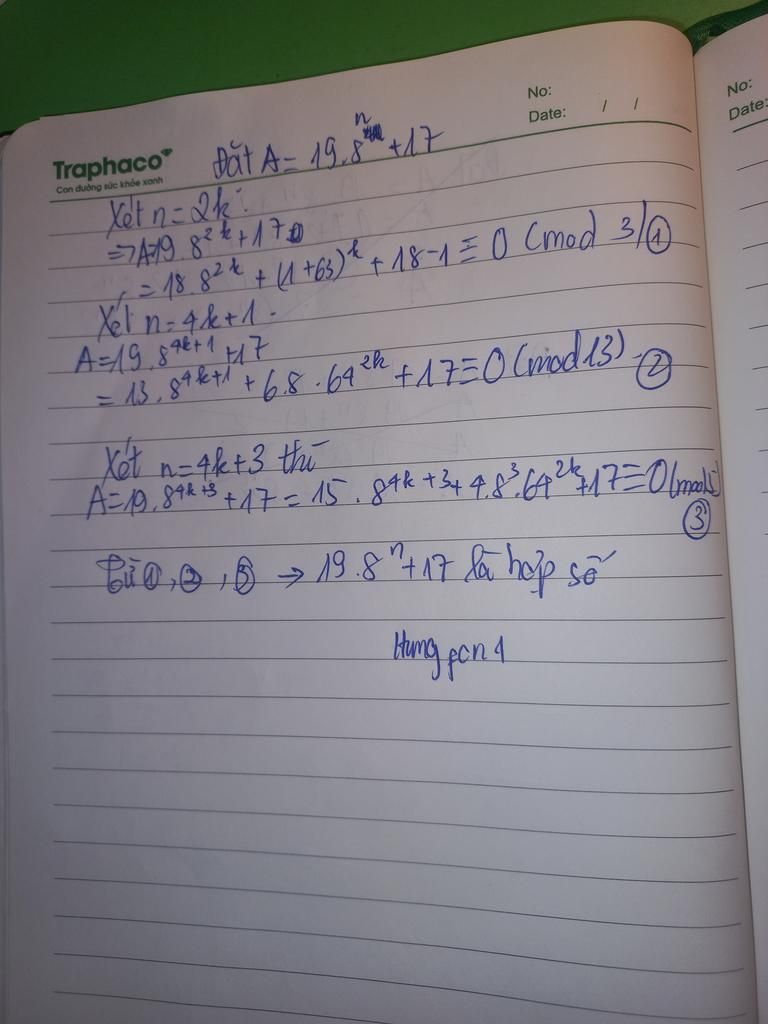 No:
Date: / /
No:
Date:
Traphaco
Con đường sức khỏe xanh
Đặt A = 19.8^n + 17
Xét n = 2k:
=> A = 19.8^{2k} + 17
= 18.8^{2k} + (1+63)^k + 18-1 ≡ 0 (mod 3) ①
Xét n = 4k+1.
A = 19.8^{4k+1} + 17
= 13.8^{4k+1} + 6.8.64^{2k} + 17 ≡ 0 (mod 13) ②
Xét n = 4k+3 thì
A = 19.8^{4k+3} + 17 = 15.8^{4k+3} + 4.8^3.64^{2k} + 17 ≡ 0 (mod 5)
③
Từ ①, ②, ③ → 19.8^n + 17 là hợp số